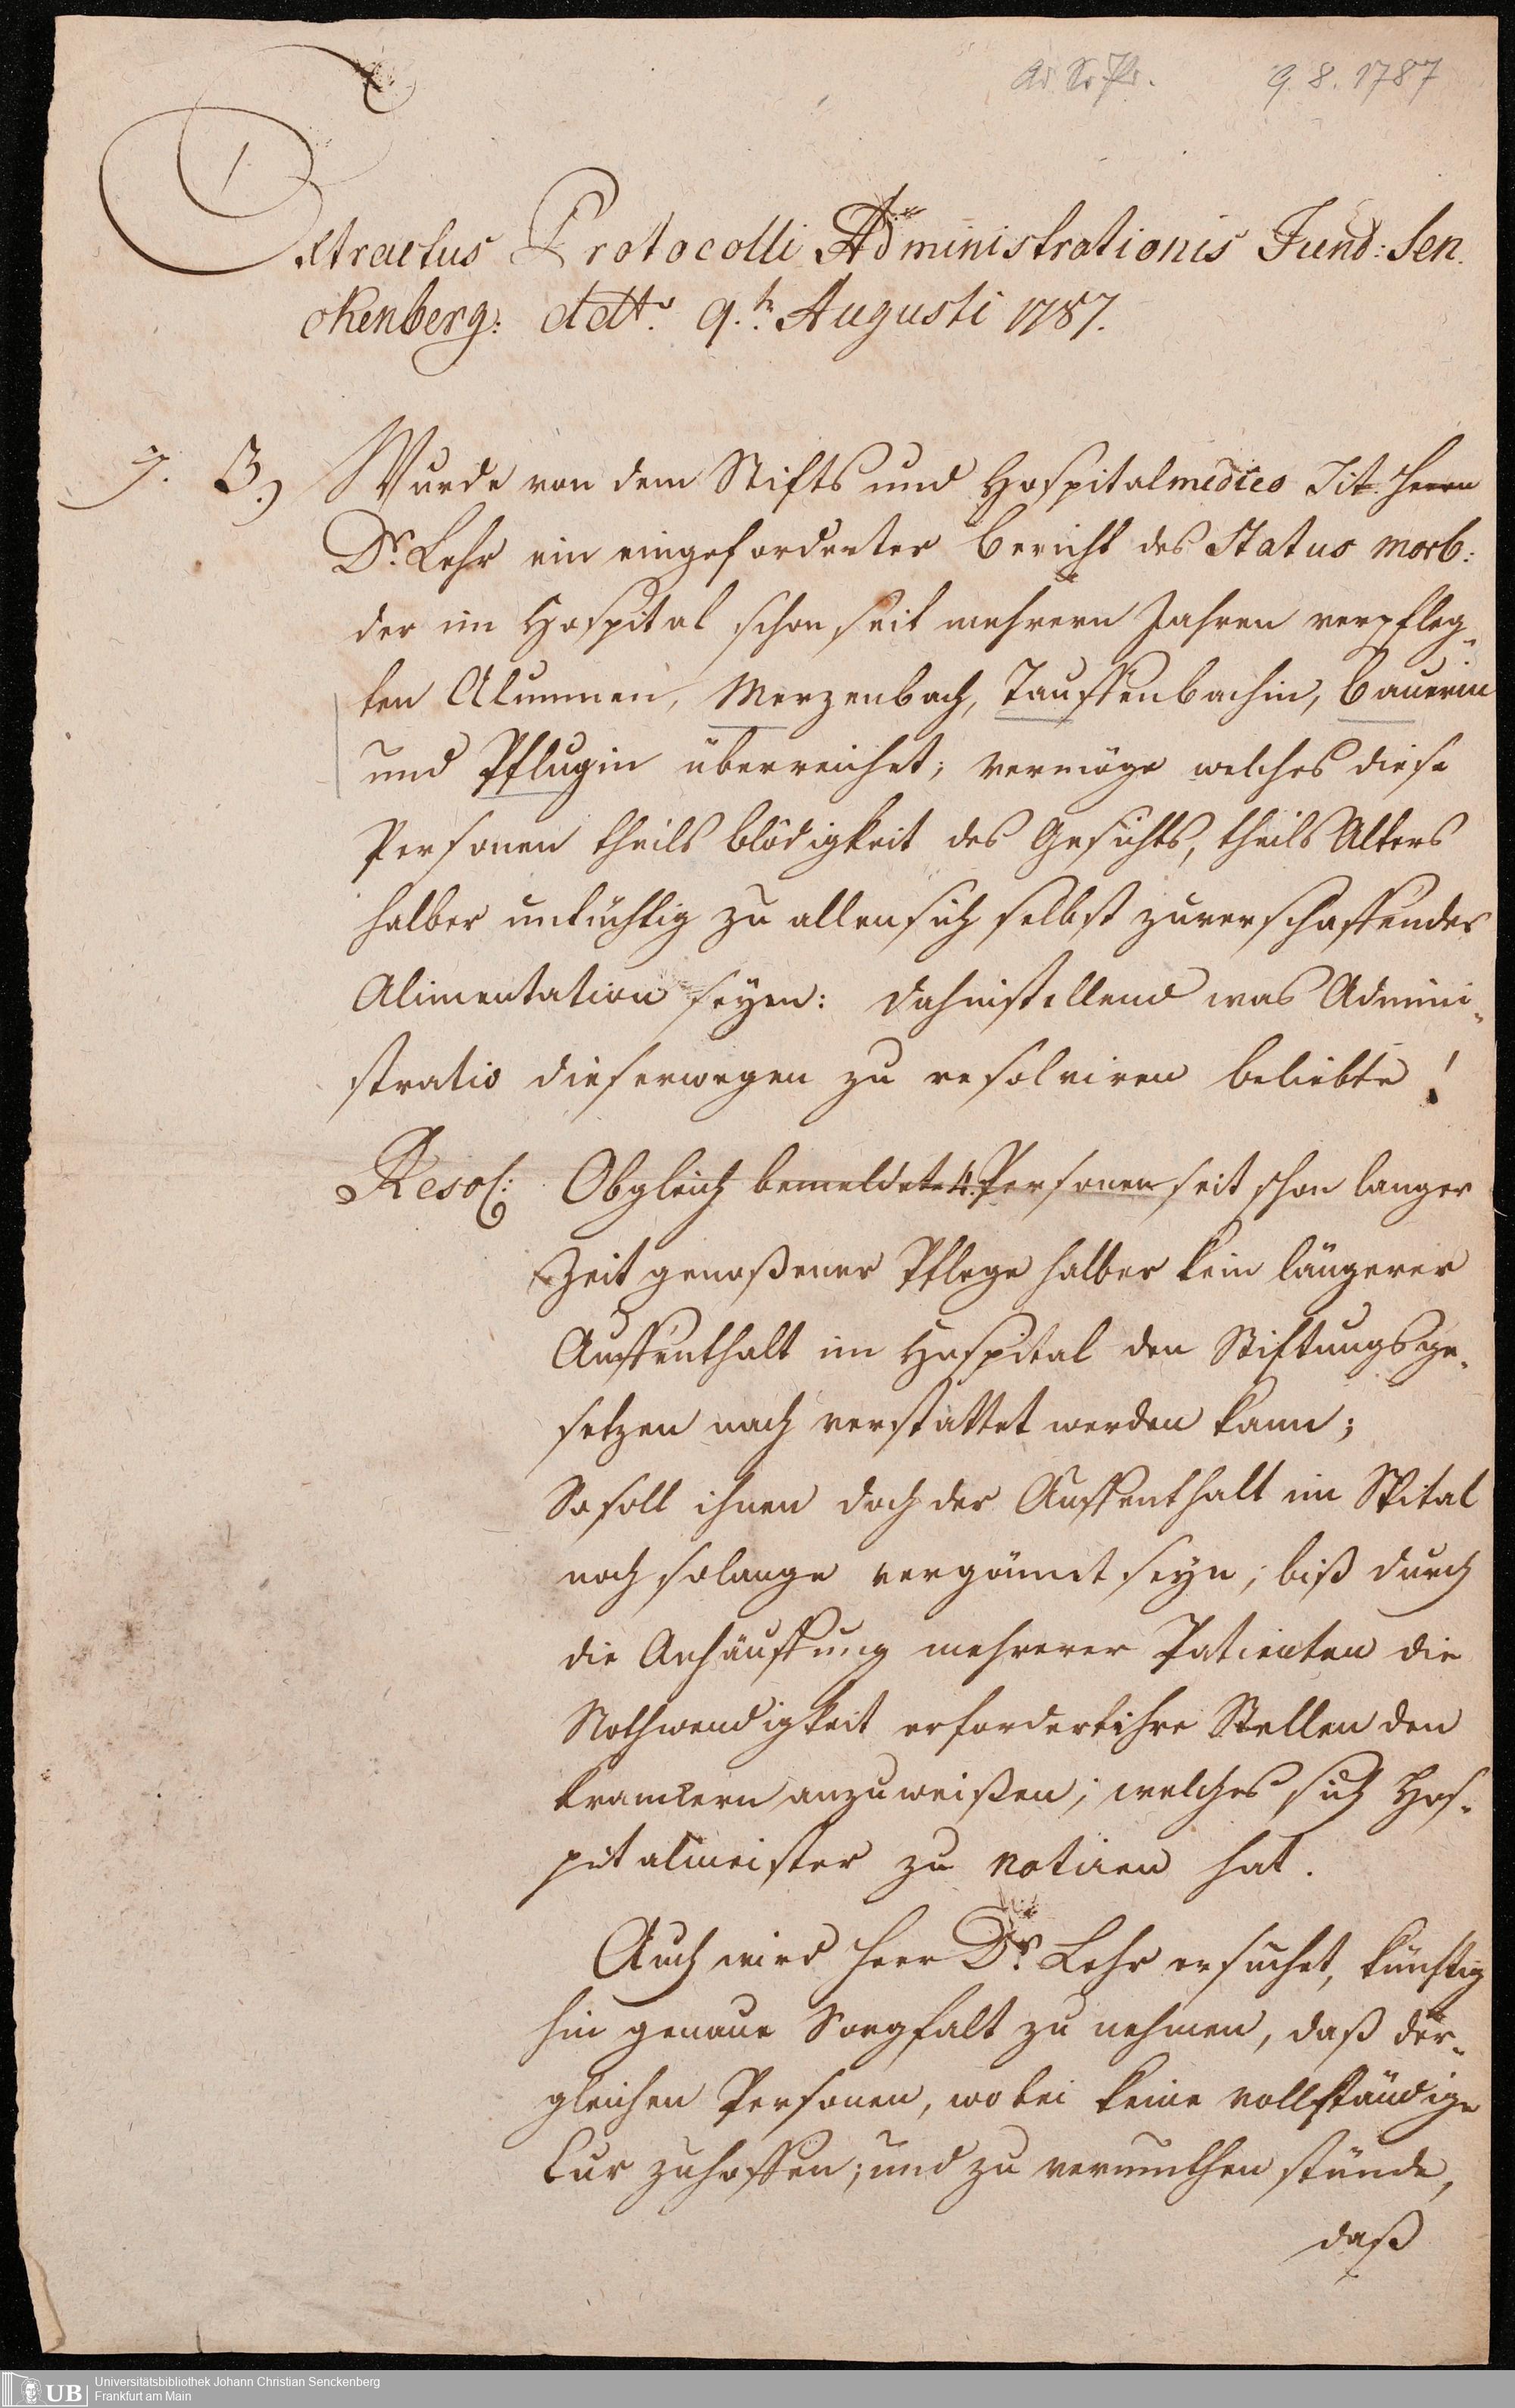 9. 8. 1787
Extractus Protocolli Administrationis Fund: Sen.
ckenberg: ddt. 9.t Augusti 1787.
7. 3.) Wurde von dem Stifts und Hospitalmedico Tit. Herrn
Dr. Lehr ein eingeforderter Bericht des Status morb:
der im Hospital schon seit mehrern Jahren verpfleg-
ten Alumnen, Merzenbach, Tauffenbachin, Bauerin
und Pflugin überreichet; vermöge welches diese
Personen theils blödigkeit des Gesichts, theils Alters
halber untüchtig zu allen sich selbst zuverschaffender
Alimentation seyen: dahinstellend was Admini-
stratio dieserwegen zu resolviren beliebte!
Resol: Obgleich bemeldete 4. Personen seit schon langer
Zeit genoßener Pflege halber kein längerer
Auffenthalt im Hospital den Stiftungsge-
setzen nach verstattet werden kann;
So soll ihnen doch der Auffenthalt im Spital
noch solange vergönnet seyn, biß durch
die Anhäuffung mehrerer Patienten die
Nothwendigkeit erfordert ihre Stellen den
kranckern anzuweißen; welches sich Hos-
pitalmeister zu notiren hat.
Auch wird Herr Dr. Lehr ersuchet, künftig
hin genaue Sorgfalt zu nehmen, daß der-
gleichen Personen, wobei keine vollständige
Cur zuhoffen; und zu vermuthen stünde,
daß
UB
Universitätsbibliothek Johann Christian Senckenberg
Frankfurt am Main